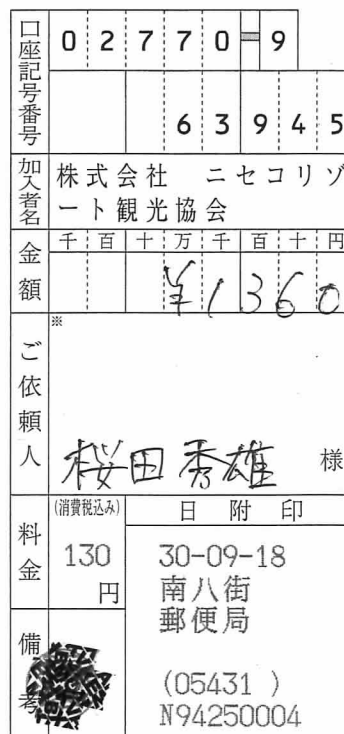 口座記号番号
02770-9
63945
加入者名
株式会社 ニセコリゾ
ート観光協会
金額
千百十万千百十円
¥1360
ご依頼人
※
桜田秀雄 様
料金
(消費税込み)
130
円
日附印
30-09-18
南八街
郵便局
(05431 )
N94250004
備考